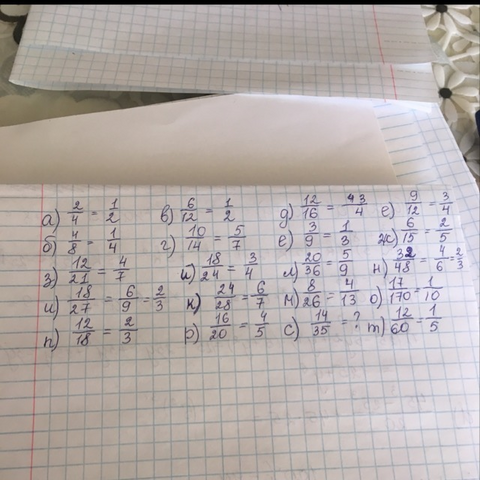 а) 2/4 = 1/2 в) 6/12 = 1/2 д) 12/16 = 3/4 е) 9/12 = 3/4
б) 4/8 = 1/4 г) 10/14 = 5/7 е) 3/9 = 1/3 ж) 6/15 = 2/5
з) 12/21 = 4/7 й) 18/24 = 3/4 л) 20/36 = 5/9 н) 32/48 = 4/6 = 2/3
и) 18/27 = 6/9 = 2/3 к) 24/28 = 6/7 м) 8/26 = 4/13 о) 17/170 = 1/10
п) 12/18 = 2/3 р) 16/20 = 4/5 с) 14/35 = ? т) 12/60 = 1/5